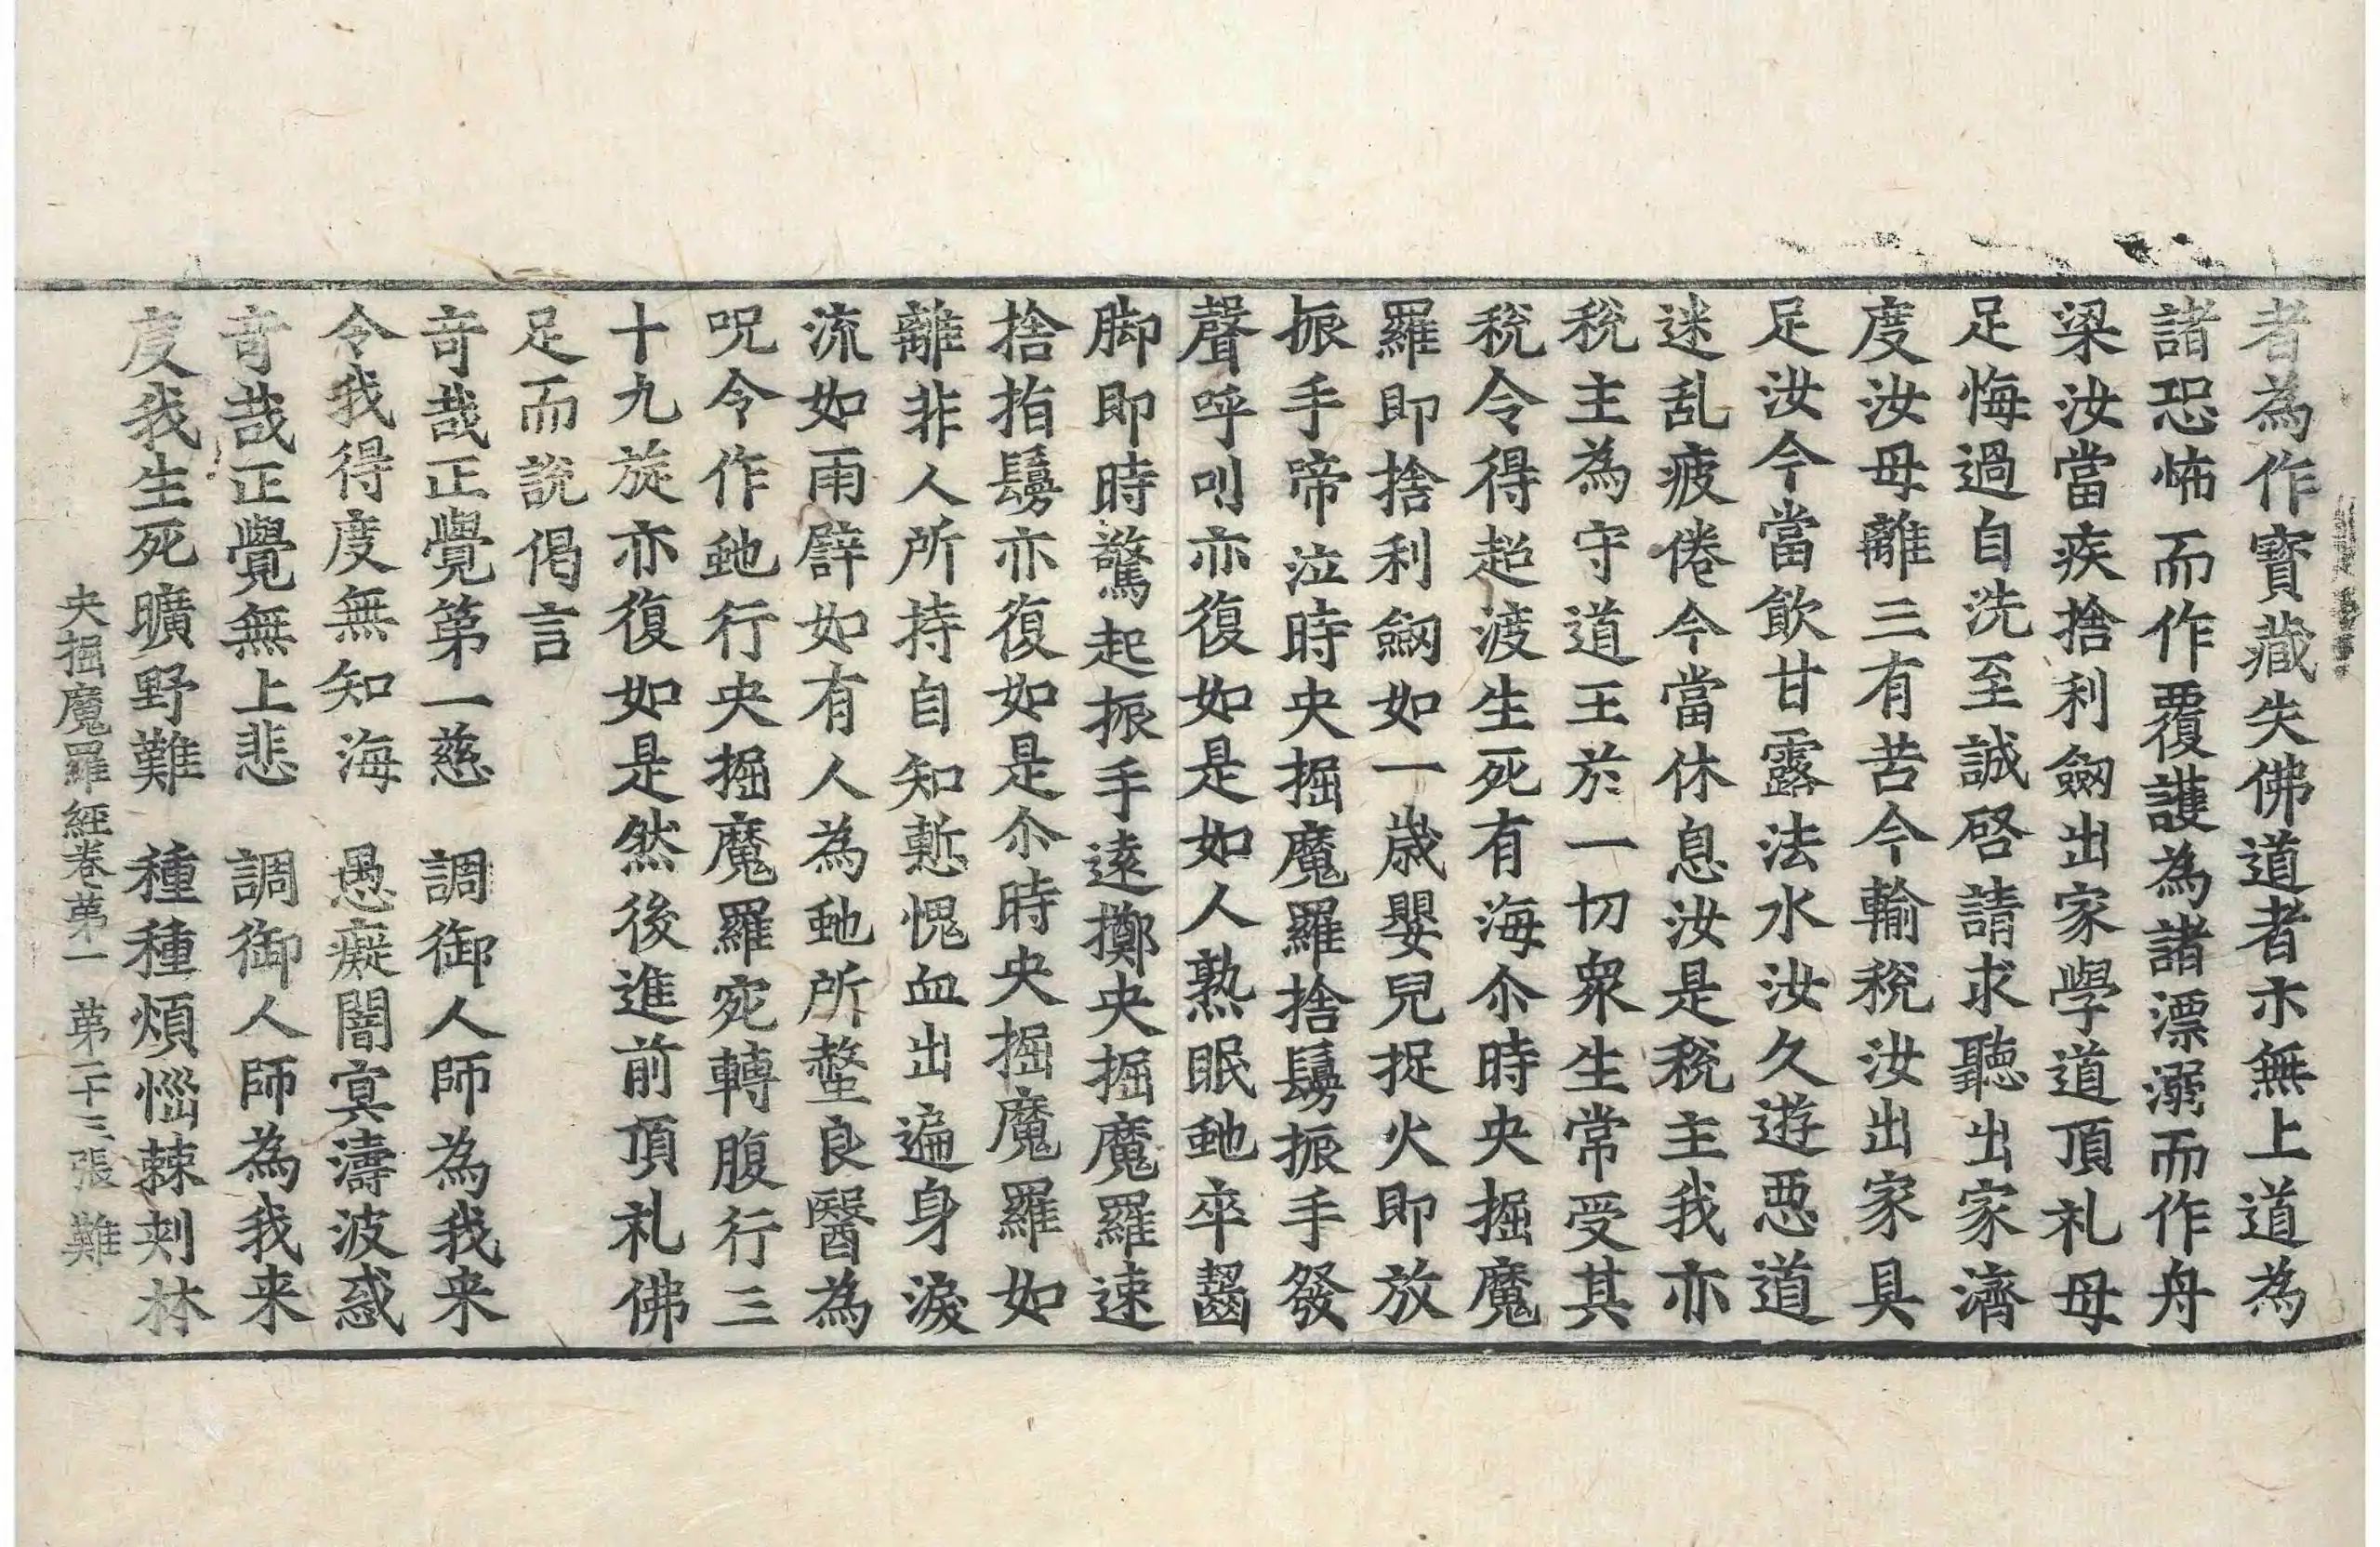 者為作寶藏失佛道者示無上道為
諸恐怖而作覆護為諸漂溺而作舟
梁汝當疾捨利劔出家學道頂礼母
足悔過自洗至誠啓請求聽出家濟
度汝母離三有苦今輸稅汝出家具
足汝今當飲甘露法水汝久遊惡道
迷乱疲倦今當休息汝是稅主我亦
稅主為守道王於一切衆生常受其
稅令得超渡生死有海尒時央掘魔
羅即捨利劔如一歲嬰兒捉火即放
振手啼泣時央掘魔羅捨鬘振手發
聲呼叫亦復如是如人熟眠虵卒齧
脚即時驚起振手遠擲央掘魔羅速
捨指鬘亦復如是尒時央掘魔羅如
離非人所持自知慙愧血出遍身淚
流如雨辟如有人為虵所螫良醫為
呪令作虵行央掘魔羅宛轉腹行三
十九旋亦復如是然後進前頂礼佛
足而說偈言
竒哉正覺第一慈　調御人師為我来
令我得度無知海　愚癡闇寞濤波惑
竒哉正覺無上悲　調御人師為我来
度我生死曠野難　種種煩惱棘刾林
央掘魔羅經卷第一　第二十三張　難